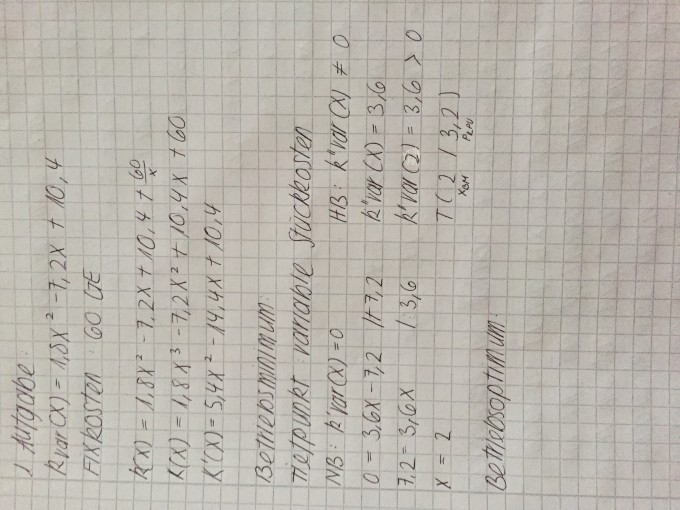 1. Aufgabe:
kvar(x) = 1,8x² - 7,2x + 10,4
Fixkosten: 60 GE
k(x) = 1,8x² - 7,2x + 10,4 + 60/x
K(x) = 1,8x³ - 7,2x² + 10,4x + 60
K'(x) = 5,4x² - 14,4x + 10,4
Betriebsminimum:
Tiefpunkt variable Stückkosten
NB: k'var(x) = 0 HB: k"var(x) ≠ 0
0 = 3,6x - 7,2 |+7,2 k"var(x) = 3,6
7,2 = 3,6x |:3,6 k"var(2) = 3,6 > 0
x = 2 T(2 / 3,2)
xBM PKPU
Betriebsoptimum: